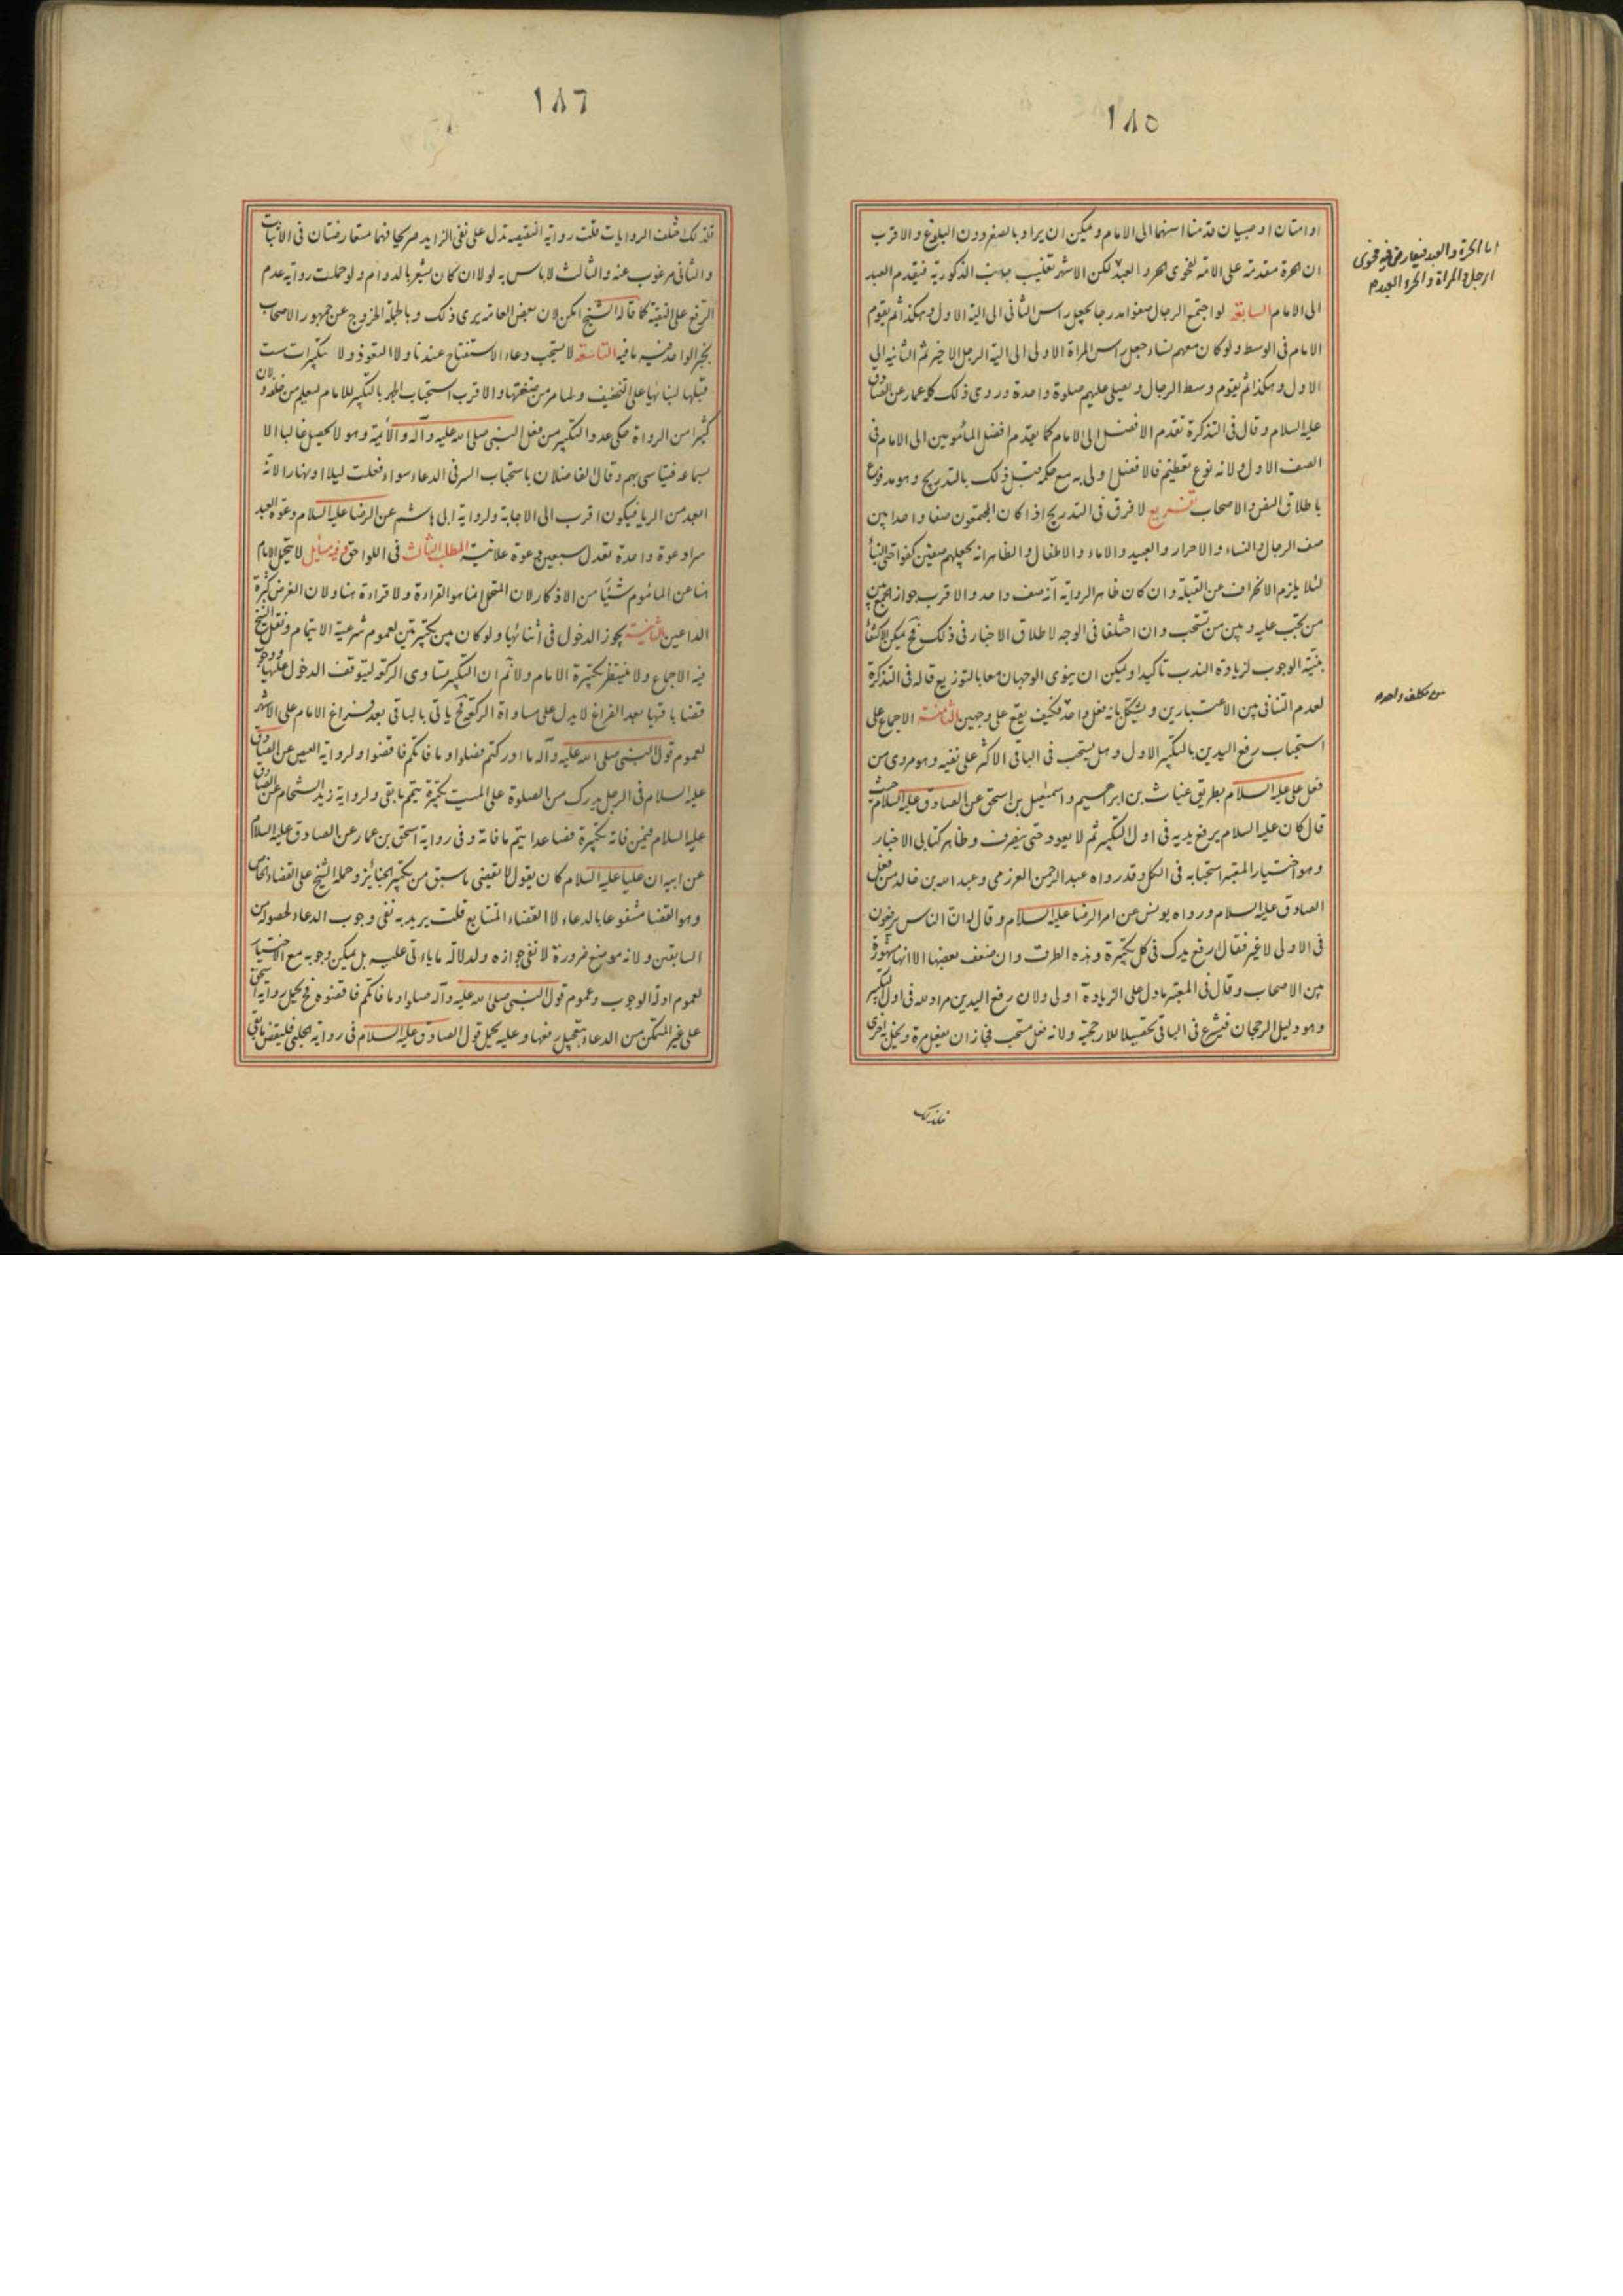 ١٨٥
او امتان او صبيان قدمنا اسنهما الى الامام ويمكن ان يراد بالصغر دون البلوغ والاقرب
ان الحرة مقدمة على الامة لفحوى الحر والعبد لكن الاشهر تغليب جانب الذكورية فيقدم العبد
الى الامام السابعة لو اجتمع الرجال صفوا مدرجا يجعل راس الثانى الى الية الاول وهكذا ثم يقوم
الامام فى الوسط ولو كان معهم نساء جعل راس المراة الاولى الى الية الرجل الاخير ثم الثانية الى
الاولى وهكذا ثم يقوم وسط الرجال ويصلى عليهم صلوة واحدة وروى ذلك كله عمار عن الصادق
عليه السلام وقال فى التذكرة تقدم الافضل الى الامام كما يقدم افضل المأمومين الى الامام فى
الصف الاول ولانه نوع تعظيم فالافضل اولى به مع حكمه قبل ذلك بالتدريج وهو مدفوع
باطلاق النص والاصحاب تفريع لا فرق فى التدريج اذا كان المجتمعون صفا واحدا بين
صف الرجال والنساء والاحرار والعبيد والاماء والاطفال والظاهر انه يجعلهم صفين كتراص البناء
لئلا يلزم الانحراف عن القبلة وان كان ظاهر الرواية انه صف واحد والاقرب جواز الجمع بين
من تجب عليه وبين من تستحب وان اختلفا فى الوجه لاطلاق الاخبار فى ذلك فح يمكن الاكتفاء
بنية الوجوب لزيادة الندب تاكيدا ويمكن ان ينوى الوجهان معا بالتوزيع قاله فى التذكرة
لعدم التنافى بين الاعتبارين ويشكل بانه فعل واحد فكيف يقع على وجهين الثامنة الاجماع على
استحباب رفع اليدين بالتكبير الاول وهل يستحب فى الباقى الاكثر على نفيه وهو مروى من
فعل على عليه السلام بطريق غياث بن ابرهيم واسمعيل بن اسحق عن الصادق عليه السلام حيث
قال كان عليه السلام يرفع يديه فى اول التكبير ثم لا يعود حتى ينصرف وظاهر كتابى الاخبار
وهو اختيار المعتبر استحبابه فى الكل وقد رواه عبد الرحمن العرزمى وعبد الله بن خالد من فعل
الصادق عليه السلام ورواه يونس عن امر الرضا عليه السلام وقال له ان الناس يرفعون
فى الاولى لا غير فقال ارفع يدك فى كل تكبيرة وهذه الطرق وان ضعف بعضها الا انها مشهورة
بين الاصحاب وقال فى المعتبر ما دل على الزيادة اولى ولان رفع اليدين مراد لله فى اول التكبير
وهو دليل الرجحان فيشرع فى الباقى تحصيلا للارجحية ولانه فعل مستحب فجاز ان يفعل مرة ويخل به اخرى
فلذلك
اما الحرة والعبد فيعارض فيه فحوى
الرجل والمراة والحر والعبد م
من مكلف واحد
١٨٦
فلذلك اختلفت الروايات قلت رواية النقيصة تدل على نفى الزايد صريحا فهما متعارضتان فى الاثبات
والثانى مرغوب عنه والثالث لا باس به لولا ان كان يشعر بالدوام ولو حملت رواية عدم
الرفع على التقية كما قاله الشيخ امكن لان بعض العامة يرى ذلك وبالجملة الخروج عن جمهور الاصحاب
بخبر الواحد فيه ما فيه التاسعة لا يستحب دعاء الاستفتاح عندنا ولا التعوذ ولا تكبيرات ست
قبلها لبنائها على التخفيف ولما مر من صفتها والاقرب استحباب الجهر بالتكبير للامام ليعلم من خلفه ولان
كثيرا من الرواة حكى عدد التكبير من فعل النبى صلى الله عليه وآله والائمة وهو لا يحصل غالبا الا
بسماعه فيتاسى بهم وقال الفاضلان باستحباب السر فى الدعاء سواء فعلت ليلا او نهارا لانه
ابعد من الريا فيكون اقرب الى الاجابة ولرواية ابى هاشم عن الرضا عليه السلام دعوة العبد
سرا دعوة واحدة تعدل سبعين دعوة علانية المطلب الثالث فى اللواحق وفيه مسائل لا يتحمل الامام
هنا عن المأموم شيئا من الاذكار لان المتحمل انما هو القراءة ولا قراءة هنا ولان الغرض كثرة
الداعين الثانية يجوز الدخول فى أثنائها ولو كان بين تكبيرتين لعموم شرعية الائتمام ونقل الشيخ
فيه الاجماع ولا ينتظر تكبيرة الامام ولا نم ان التكبير مساوى الركعة ليتوقف الدخول عليها ووجوب
قضائها بعد الفراغ لا يدل على مساواة الركعة فح ياتى بالباقى بعد فراغ الامام على الاشهر
لعموم قول النبى صلى الله عليه وآله ما ادركتم فصلوا وما فاتكم فاقضوا ولرواية العيص عن الصادق
عليه السلام فى الرجل يدرك من الصلوة على الميت تكبيرة يتم ما بقى ولرواية زيد الشحام عن الصادق
عليه السلام فيمن فاته تكبيرة فصاعدا يتم ما فاته وفى رواية اسحق بن عمار عن الصادق عليه السلام
عن ابيه ان عليا عليه السلام كان يقول لا يقضى ما سبق من تكبير الجنائز وحمله الشيخ على القضاء الخاص
وهو القضا مشفوعا بالدعاء لا القضاء المتتابع قلت يريد به نفى وجوب الدعاء لحصوله من
السابقين ولانه موضع ضرورة لا نفى جوازه ولدلالة ما ياتى عليه بل يمكن وجوبه مع الاختيار
لعموم ادلة الوجوب وعموم قول النبى صلى الله عليه وآله صلوا وما فاتكم فاقضوه فح تحمل رواية اسحق
على غير المتمكن من الدعاء بتعجيل رفعها وعليه يحمل قول الصادق عليه السلام فى رواية الحلبى فليقض ما بقى